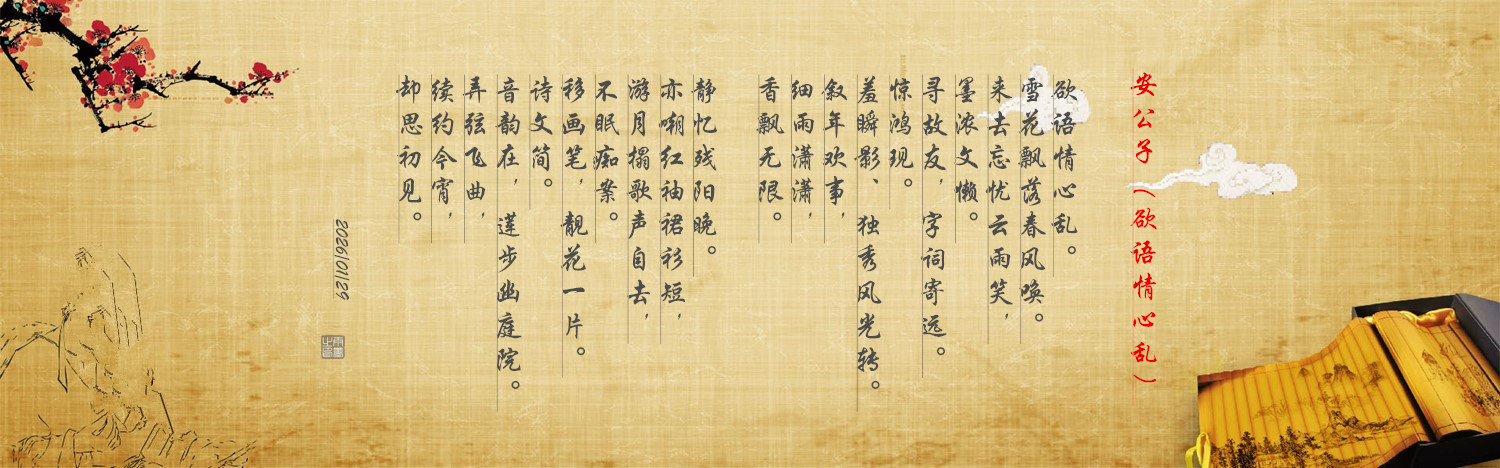 安公子（欲语情心乱）
欲语情心乱。
雪花飘落春风唤。
来去忘忧云雨笑，
墨浓文懒。
寻故友，字词寄远。
惊鸿现。
羞瞬影、独秀风光转。
叙年欢事，
细雨潇潇，
香飘无限。
静忆残阳晚。
亦嘲红袖裙衫短，
游月榻歌声自去，
不眠痴案。
移画笔，靓花一片。
诗文简。
音韵在，莲步幽庭院。
弄弦飞曲，
续约今宵，
却思初见。
2026/01/29